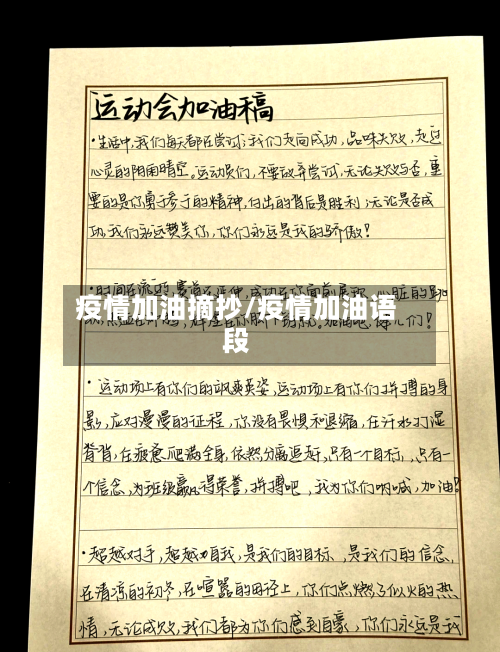 运动会加油稿
·生活中,我们每天都在尝试;我们走向成功,品味失败,走过
心灵的阴雨晴空。运动员们,不要放弃尝试,无论失败与否,重
要的是你勇于参于的精神,付出的背后是胜利,无论是否成
功,我们永远赞美你,你们永远是我的骄傲!
疫情加油摘抄/疫情加油语
段
·运动场上有你们的飒爽英姿,运动场上有你们拼搏的身
影,应对漫漫的征程,你没有畏惧和退缩,在汗水打湿
脊背,在疲惫爬满全身,依然分离追赶,只有一个目标,,只有一
个信念,为班级赢得荣誉,拼搏吧,我为你们呐喊,加油!
·超越对手,超越自我,是我们的目标,是我们的信念,
在清凉的初冬,在喧嚣的田径上,你们点燃了似火的热
情,无论成败,我们都为你们感到自豪,你们永远是我